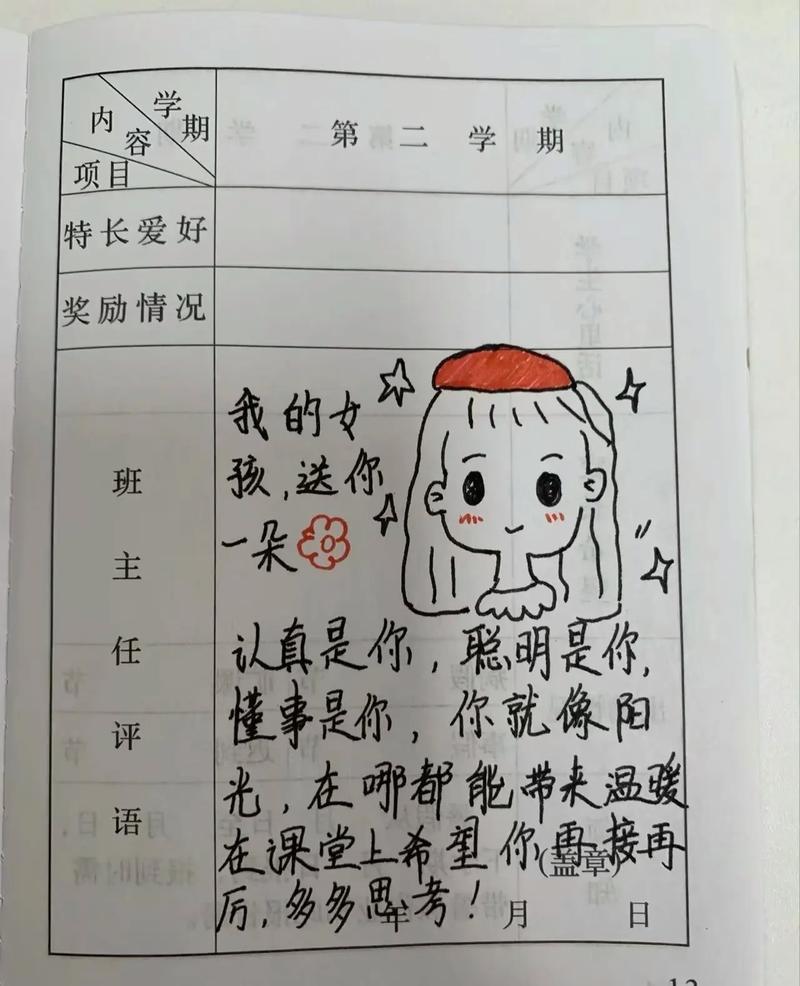 学期
内容
项目
第二学期
特长爱好
奖励情况
班主任评语
我的女
孩,送你
一朵
认真是你,聪明是你,
懂事是你,你就像阳
光,在哪都能带来温暖
在课堂上希望你再接再
(盖章)
厉,多多思考!
年 月 日